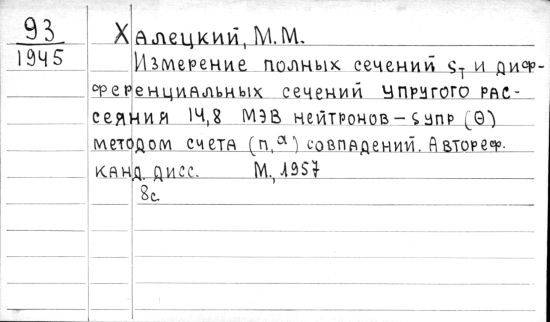 93
1945
Халецкий, М.М.
Измерение полных сечений Sт и диф-
ференциальных сечений упругого рас-
сеяния 14,8 МЭВ нейтронов – Sупр (θ)
методом счета (n,α) совпадений. Автореф.
канд. дисс. М., 1957
8с.